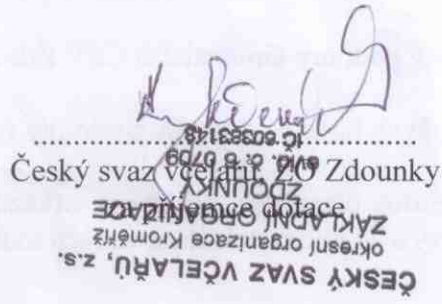 Český svaz včelařů, ZO Zdounky
za příjemce dotace
ČESKÝ SVAZ VČELAŘŮ, z.s.
okresní organizace Kroměříž
ZÁKLADNÍ ORGANIZACE
ZDOUNKY
evid. č. 6 0709
IČ 60383143